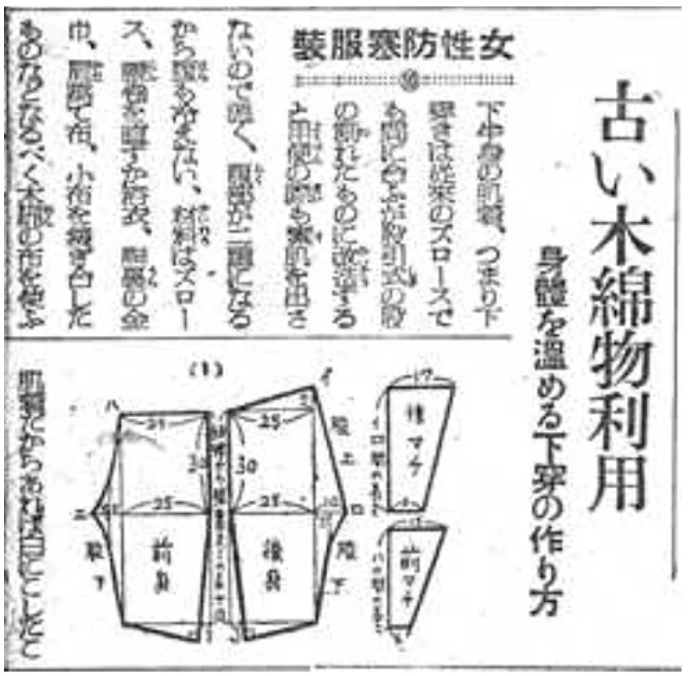 古い木綿物利用
身體を溫める下穿の作り方
女性防寒服裝
下半身の肌着、つまり下
穿きは從來のズロースで
も間に合ふが股引式の股
の割れたものに改造する
と用便の際も素肌を出さ
ないので く、腹部が二重になる
から腹も冷えない、材料はズロー
ス、腰卷を直すか浴衣、胴裏の金
巾、肩當て布、小布を接ぎ合した
ものなどなるべく木綿の布を使ふ
肌着だからあれば白にこしたこと
(1)
17
後マチ
前マチ
イ
股上
ロ
股下
25
30
25
10
後身
ハ
25
30
25
ニ
股下
前身